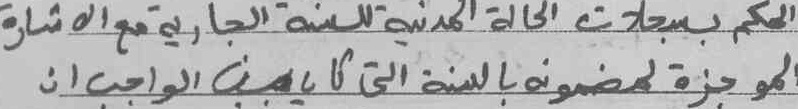 الحكم بسجلات الحالة المدنية للسنة الجارية مع الاشارة
الموجزة لمضمونه بالسنة التي كا الواجب ان